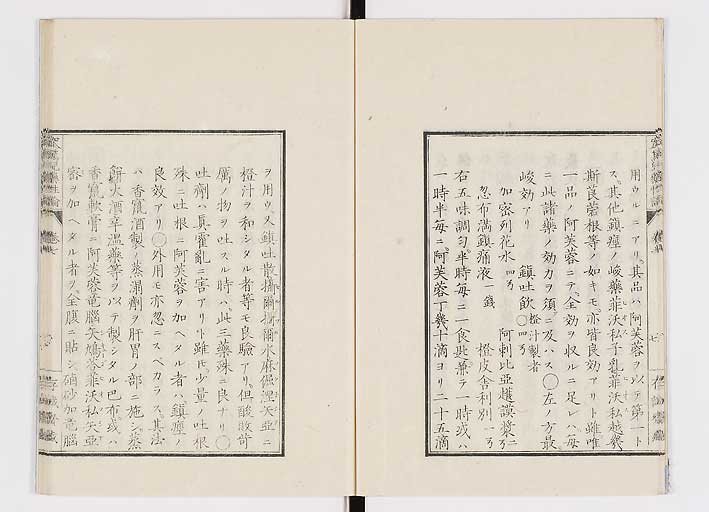 用ウルニアリ其品ハ阿芙蓉ヲ以テ第一ト
ス其他鎮痙ノ峻藥菲沃私子乳菲沃私越幾
斯莨菪根等ノ如キモ亦皆良効アリト雖唯
一品ノ阿芙蓉ニテ全効ヲ收ルニ足レハ毎
ニ此諸藥ノ効力ヲ須ニ及ハス〇左ノ方最
峻効アリ 鎮吐飲 橙汁製者 〇四ゟ
加密列花水 四ゟ 阿剌比亞護謨漿 二ゟ
忽布満鎮痛液 一錢 橙皮舎利別 一ゟ
右五味調匀半時毎ニ一食匙兼テ一時或ハ
一時半毎ニ阿芙蓉丁幾十滴ヨリ二十五滴
ヲ用ウ又鎮吐散 水麻倔涅矢亞ニ
橙汁ヲ和シタル者等モ良驗アリ但酸敗苛
厲ノ物ヲ吐スル時ハ此三藥殊ニ良ナリ〇
吐劑ハ眞霍亂ニ害アリト雖𪜈少量ノ吐根
殊ニ吐根ニ阿芙蓉ヲ加ヘタル者ハ鎮痙ノ
良效アリ〇外用モ亦忽ニスベカラス其法
ハ香竄酒製ノ蒸溻劑ヲ肝胃ノ部ニ施シ蒸
餅火酒草温藥等ヲ以テ製シタル巴布或ハ
香竄軟膏ニ阿芙蓉竜腦矢鳩荅菲沃私矢亞
密ヲ加ヘタル者ヲ全腹ニ貼シ硇砂加竜腦